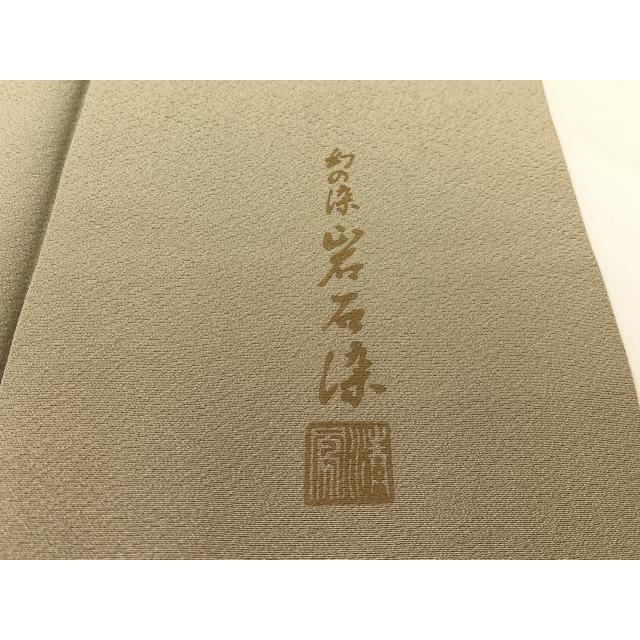 幻の染
岩石染